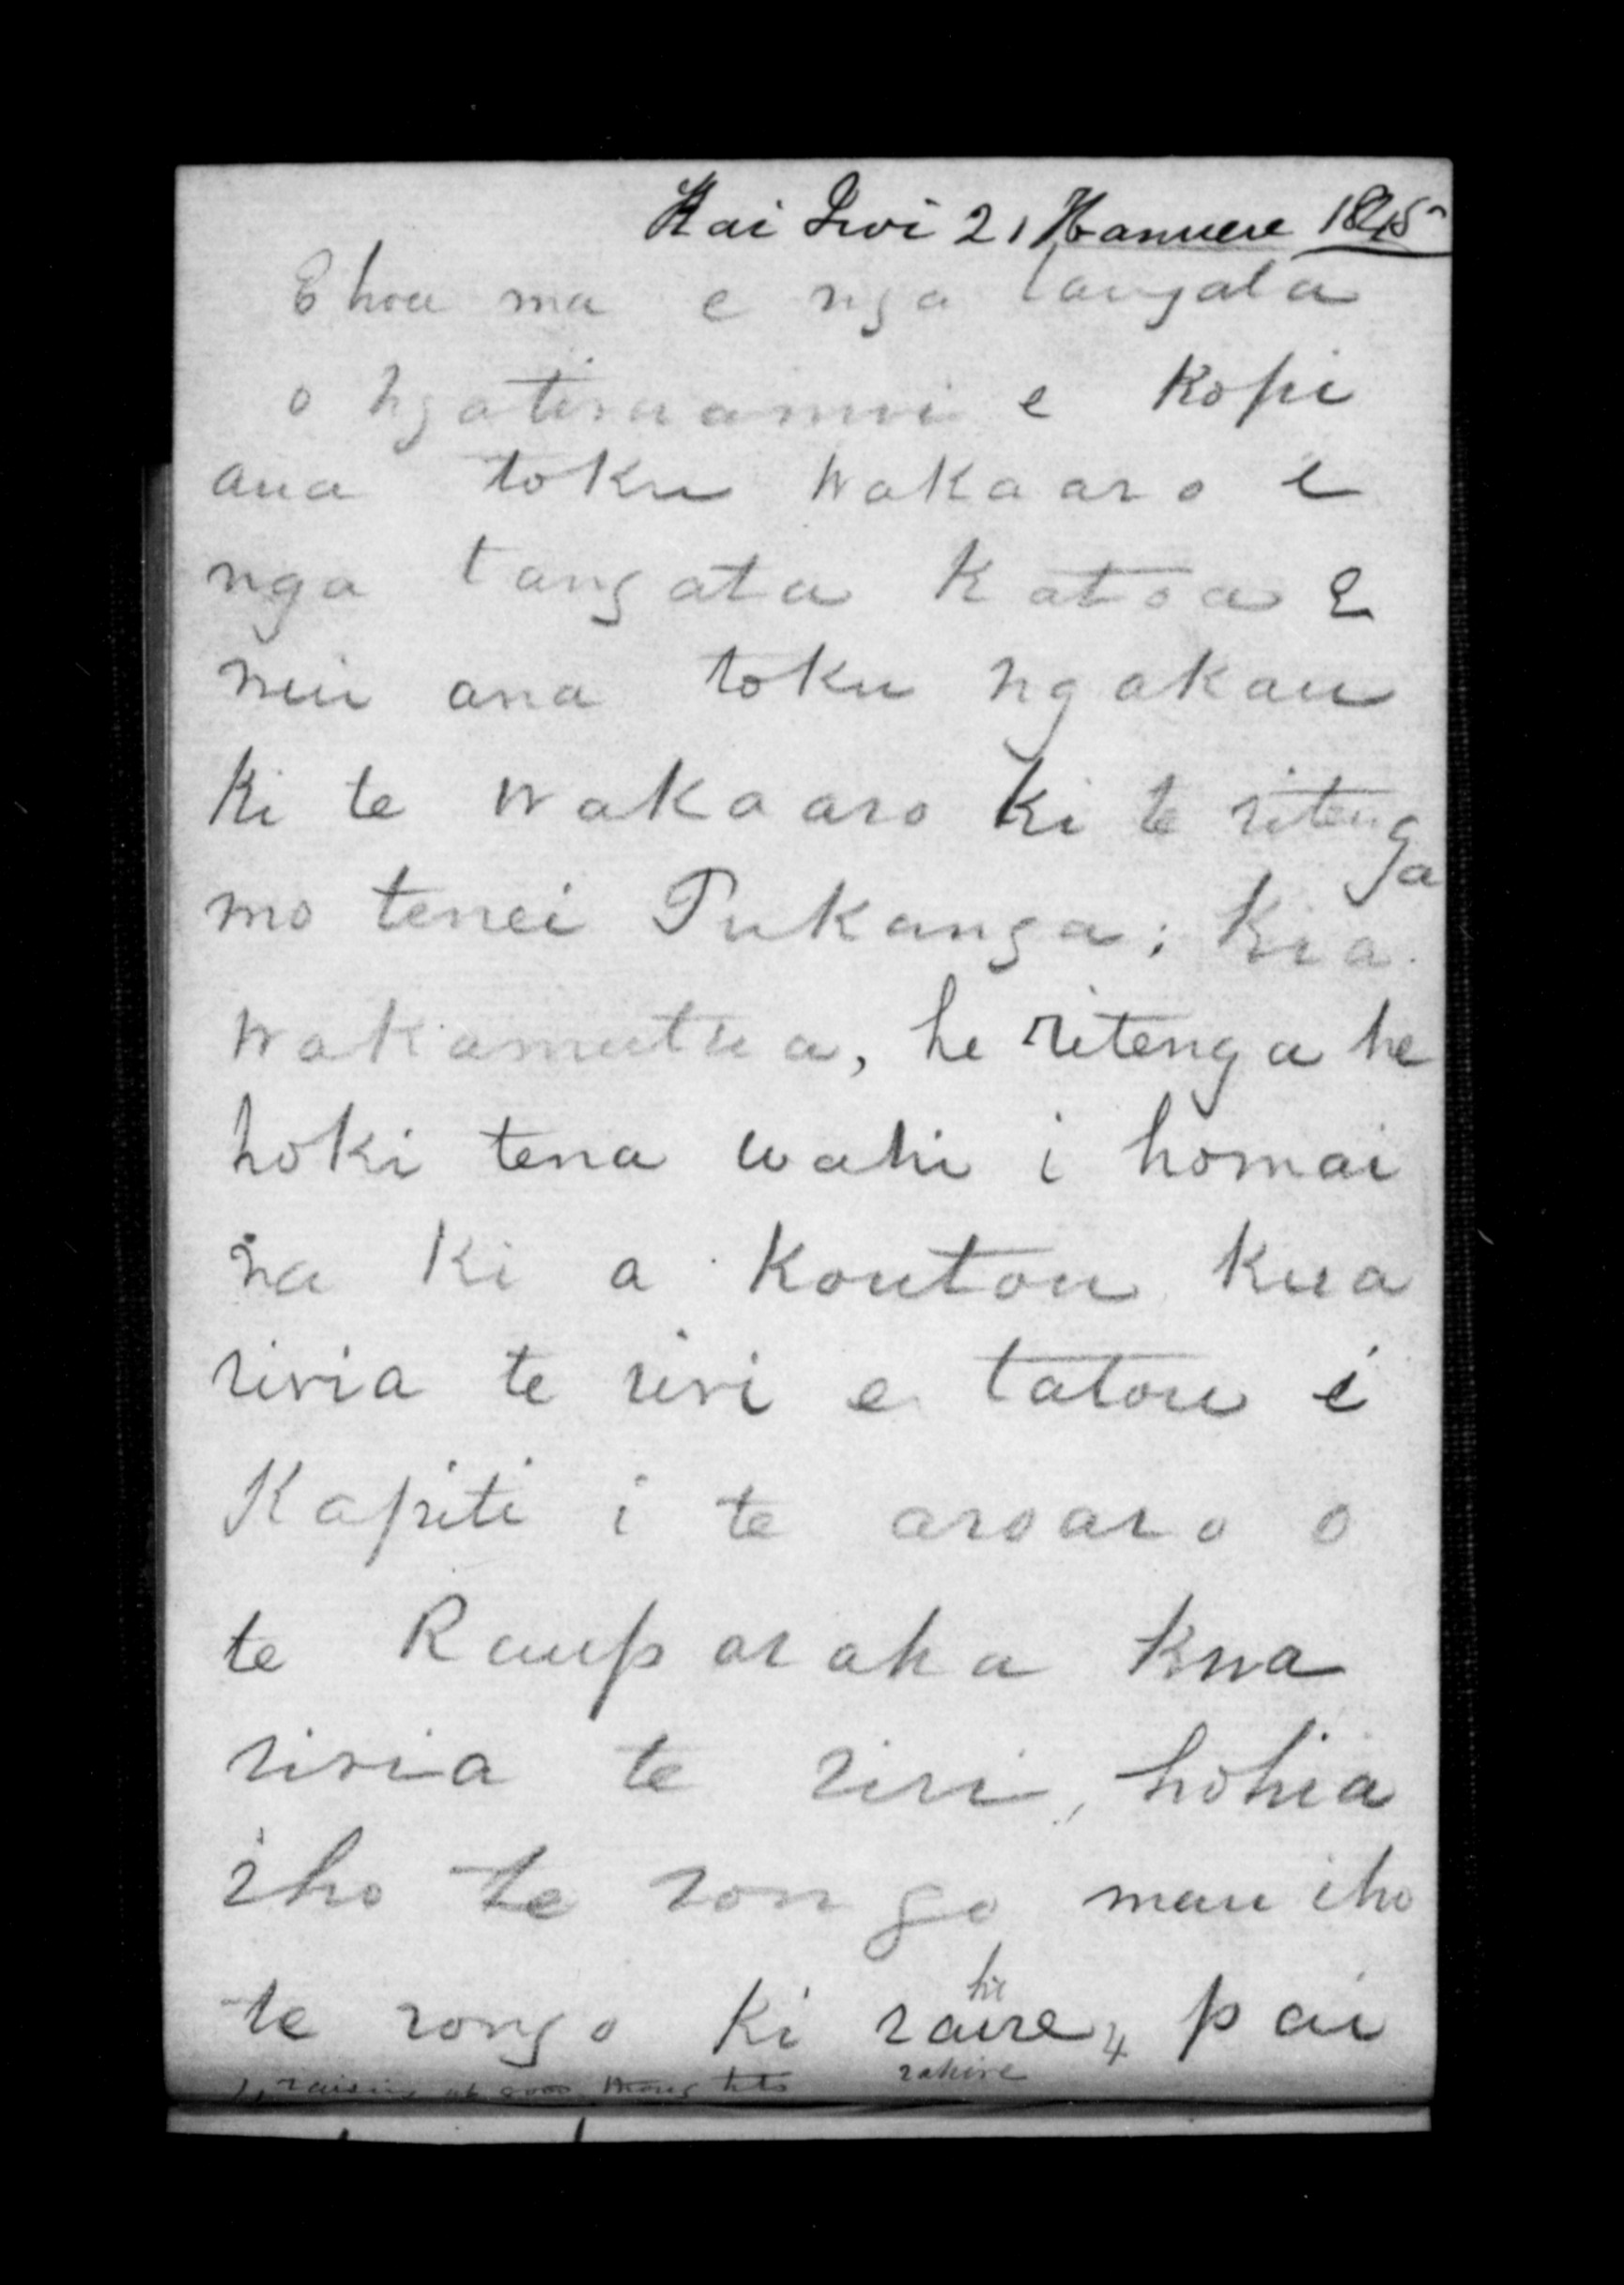 Kai Iwi 21 Hanuere 1845
E hoa ma e nga tangata
o Ngatiraanui e Kopi
ana toku wakaaro e
nga tangata Katoa E
nui ana toku ngakau
Ki te wakaaro Ki te ritenga
mo tenei Pukanga; Kia
wakamutua, he ritenga he
hoki tena wahi i homai
na Ki a Koutou Kua
riria te riri e tatou i
Kapiti i te aroaro o
te Rauparaha Kua
riria te riri, hohia
iho te rongo mau iho
te rongo Ki raire, pai
hi
rahire